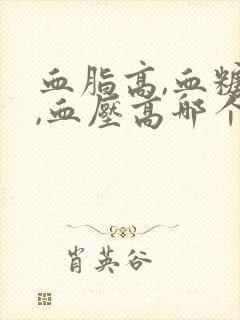 血脂高,血糖
,血壓高哪个
肖英谷